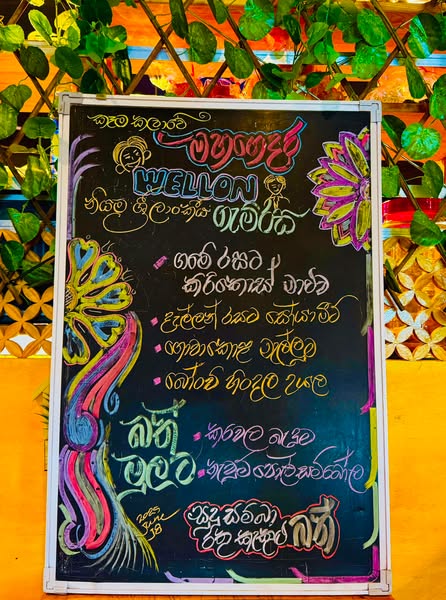 කෑම කලාවේ
මහගෙදර
WELLON
නියම ශ්‍රී ලාංකීය ගැමිරස
ගමේ රසට
කිරිකොස් මාළුව
දැල්ලන් රසට සෝයාමීට්
ගෝවාකොළ මැල්ලුම
බෝංචි හිඳල උයල
බත් මුලට
කරවල බැදුම
නැවුම් පොල් සම්බෝල
සුදු සම්බා
රතු කැකුළු බත්
2025
June
18